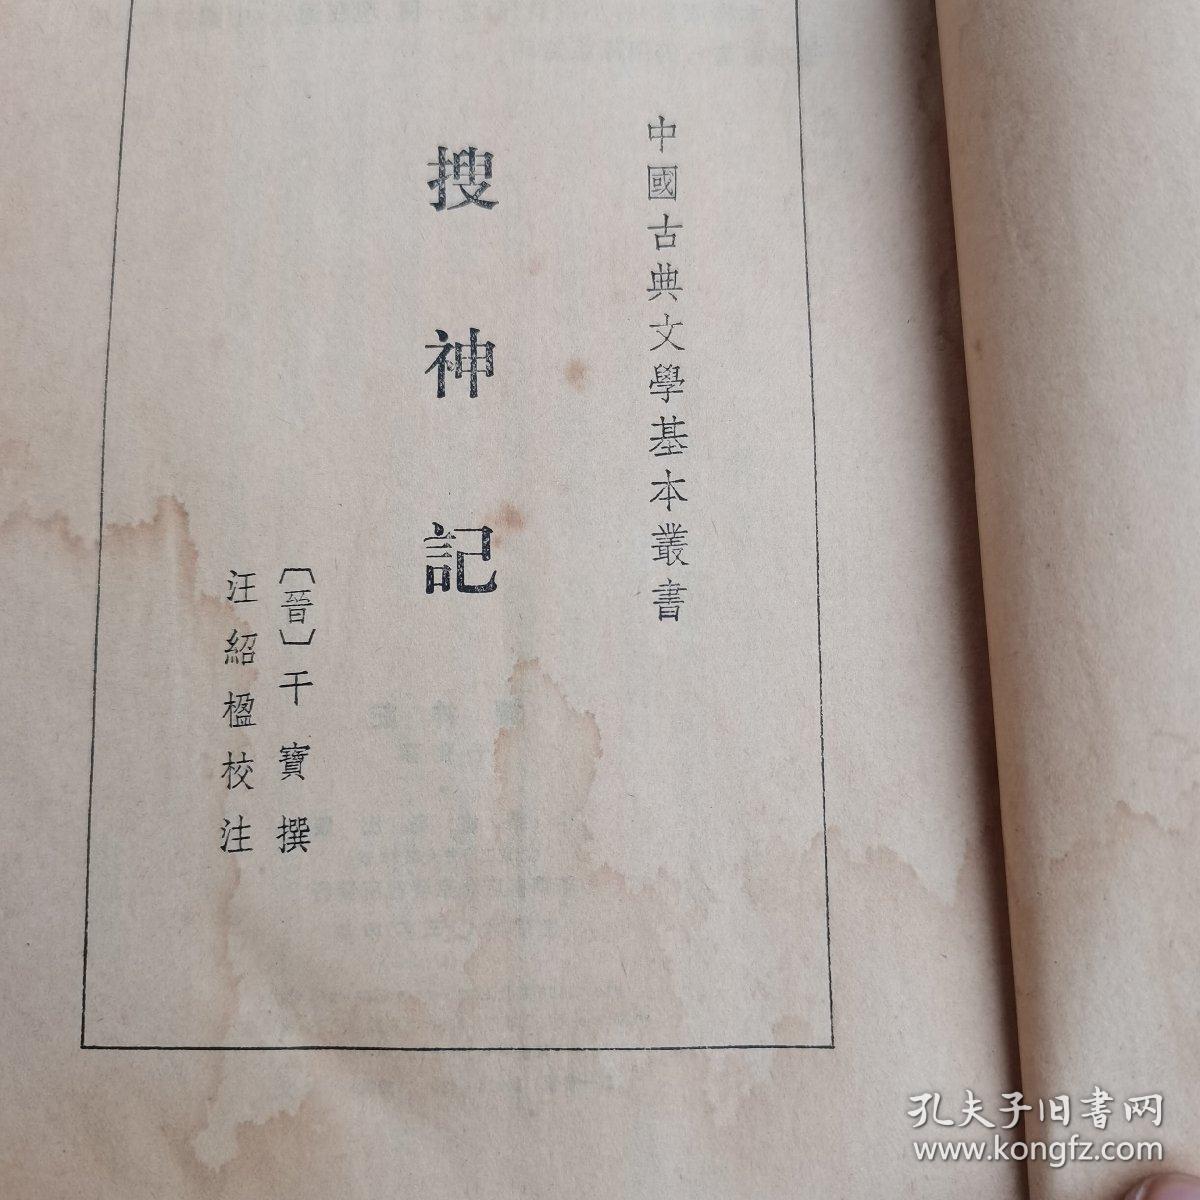 中國古典文學基本叢書
搜神記
〔晉〕干寶撰
汪紹楹校注
孔夫子旧书网
www.kongfz.com